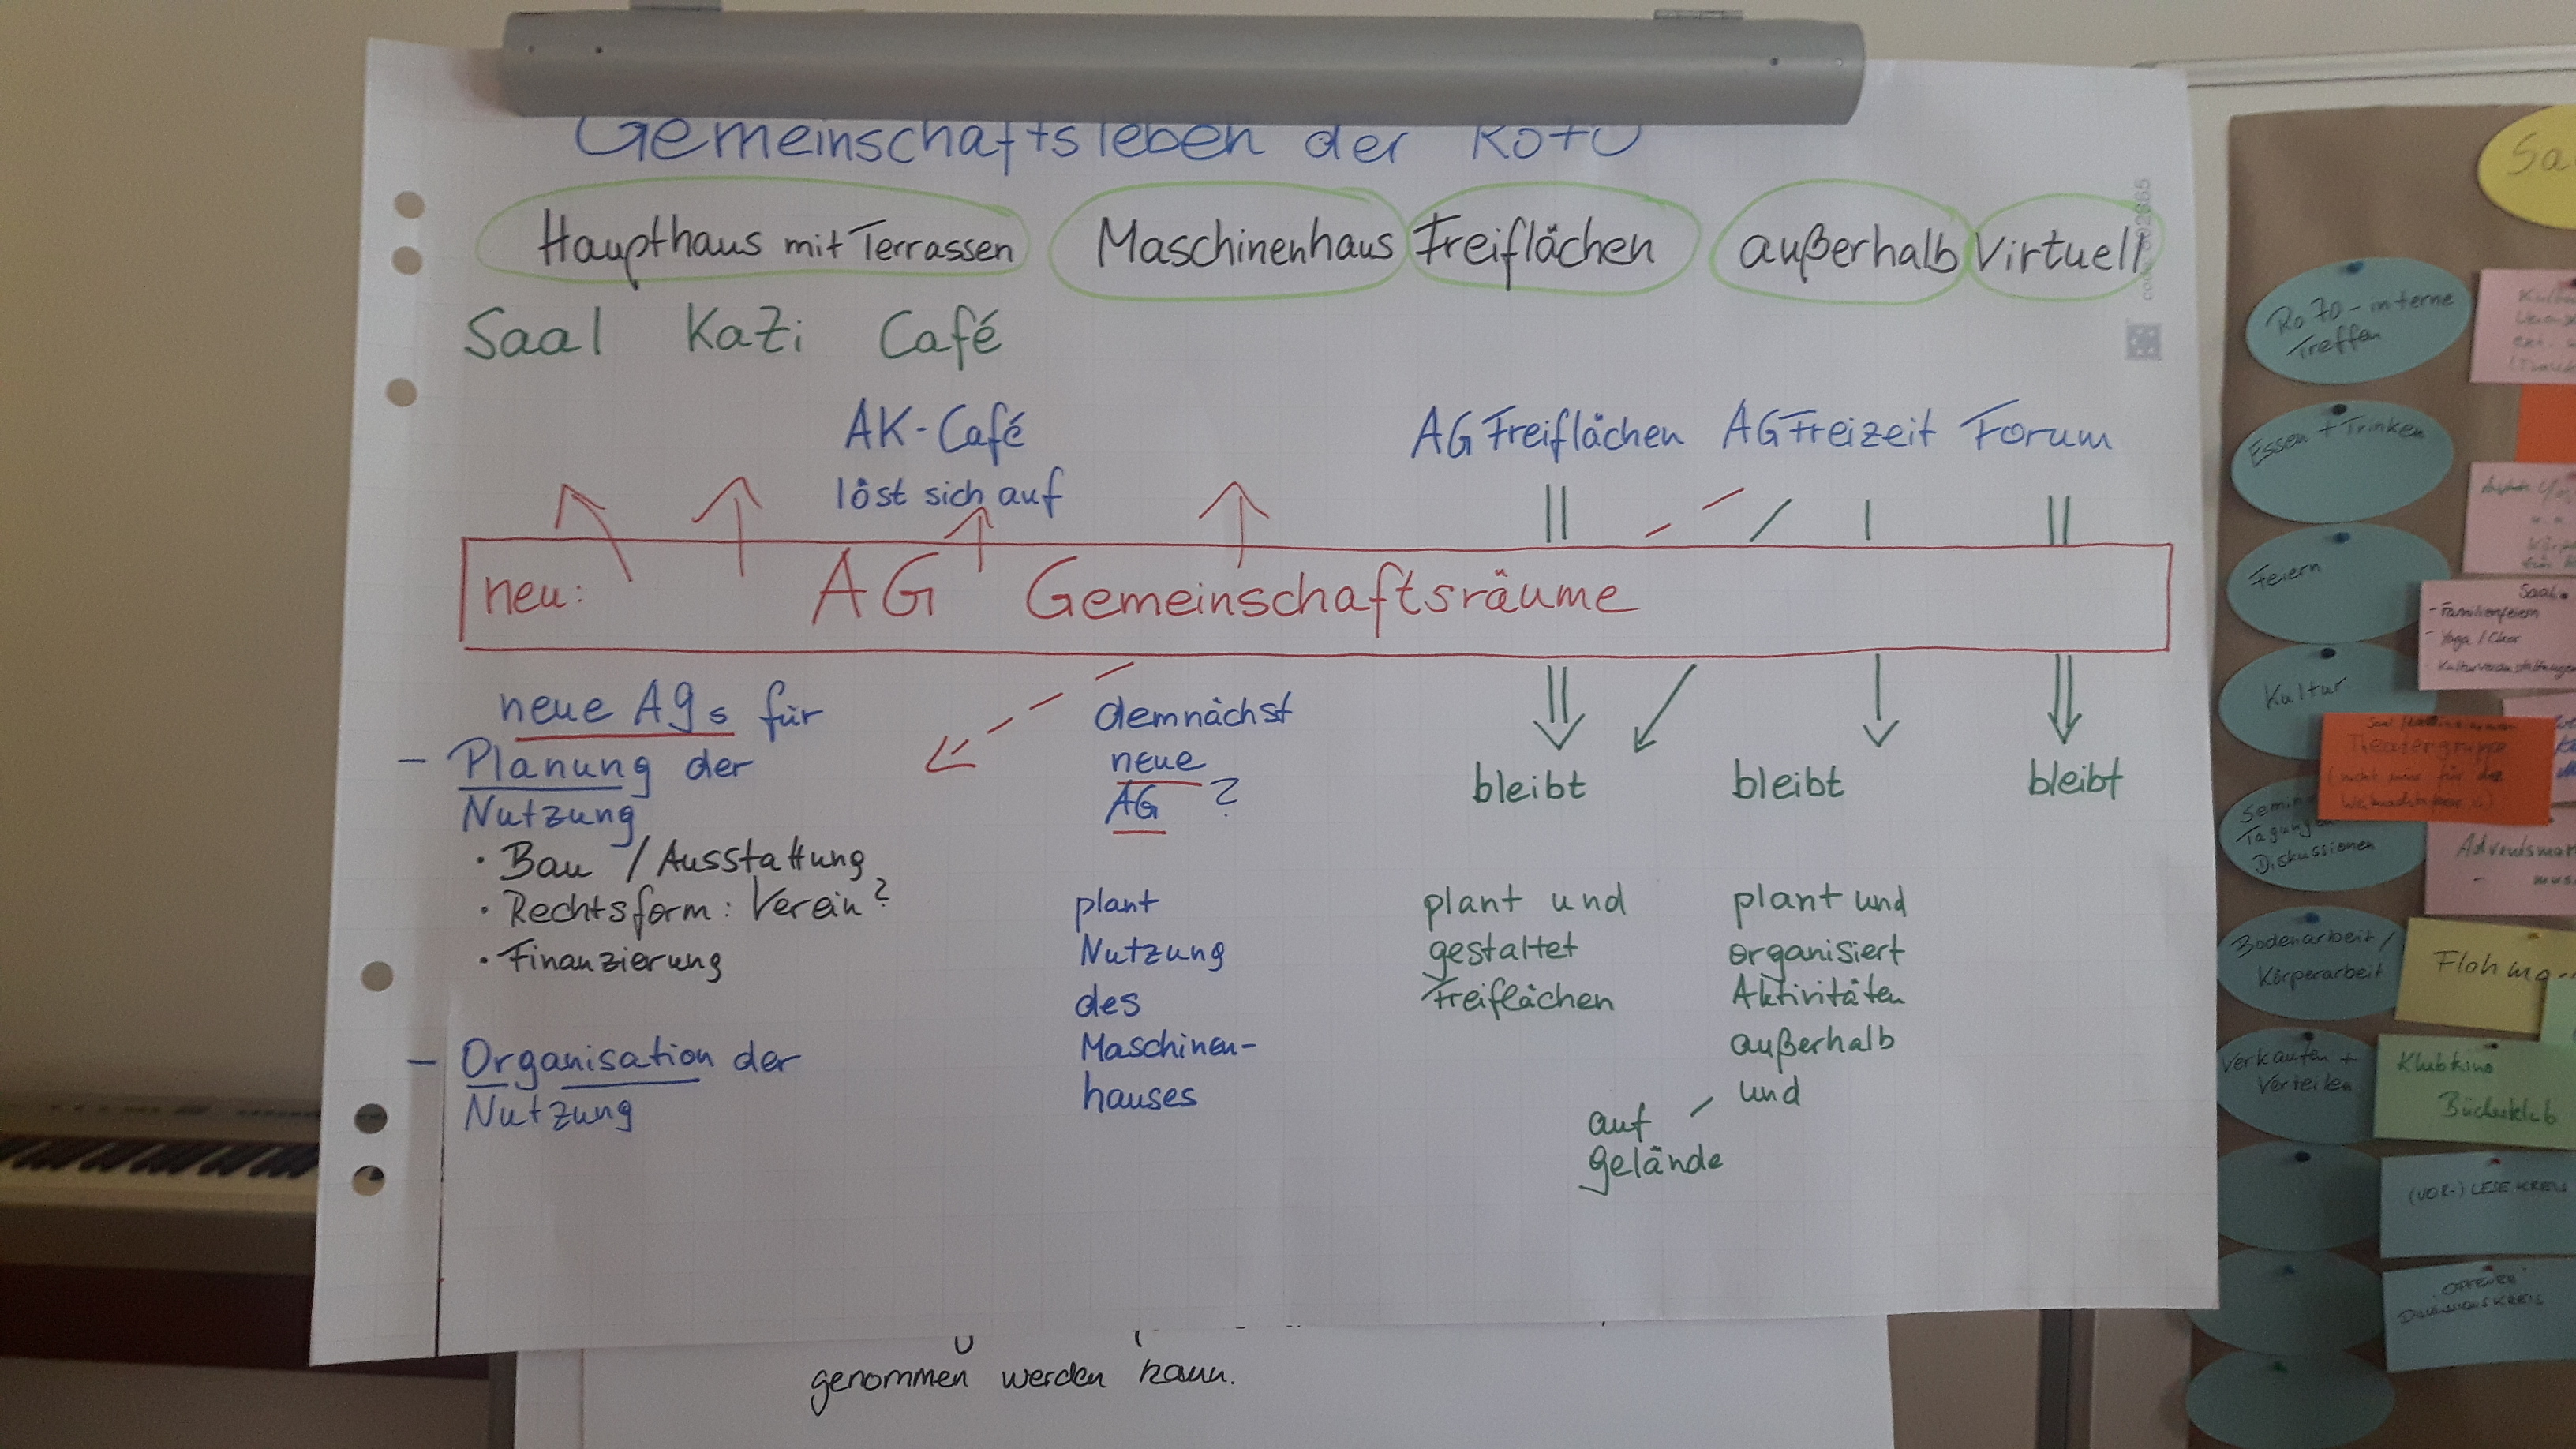 Gemeinschaftsleben der Ro70
Haupthaus mit Terrassen Maschinenhaus Freiflächen außerhalb Virtuell
Saal KaZi Café
AK-Café AG Freiflächen AG Freizeit Forum
löst sich auf
neu: AG Gemeinschaftsräume
neue AGs für
- Planung der
Nutzung
• Bau / Ausstattung
• Rechtsform: Verein?
• Finanzierung
- Organisation der
Nutzung
demnächst
neue
AG ?
plant
Nutzung
des
Maschinen-
hauses
bleibt
plant und
gestaltet
Freiflächen
bleibt
plant und
organisiert
Aktivitäten
außerhalb
und
auf
gelände
bleibt
genommen werden kann.
Sa
Ro70-interne
Treffen
Essen + Trinken
Feiern
Kultur
Semin
Tagung
Diskussionen
Bodenarbeit/
Körperarbeit
Verkaufen +
Verteilen
Saal
- Familienfeiern
- Yoga / Chor
- Kulturveranstaltungen
Theatergruppe
Adventsmar
musi
Flohma
Klubkino
Bücherklub
(VOR-) LESEKREIS
OFFENER
DISKUSSIONSKREIS